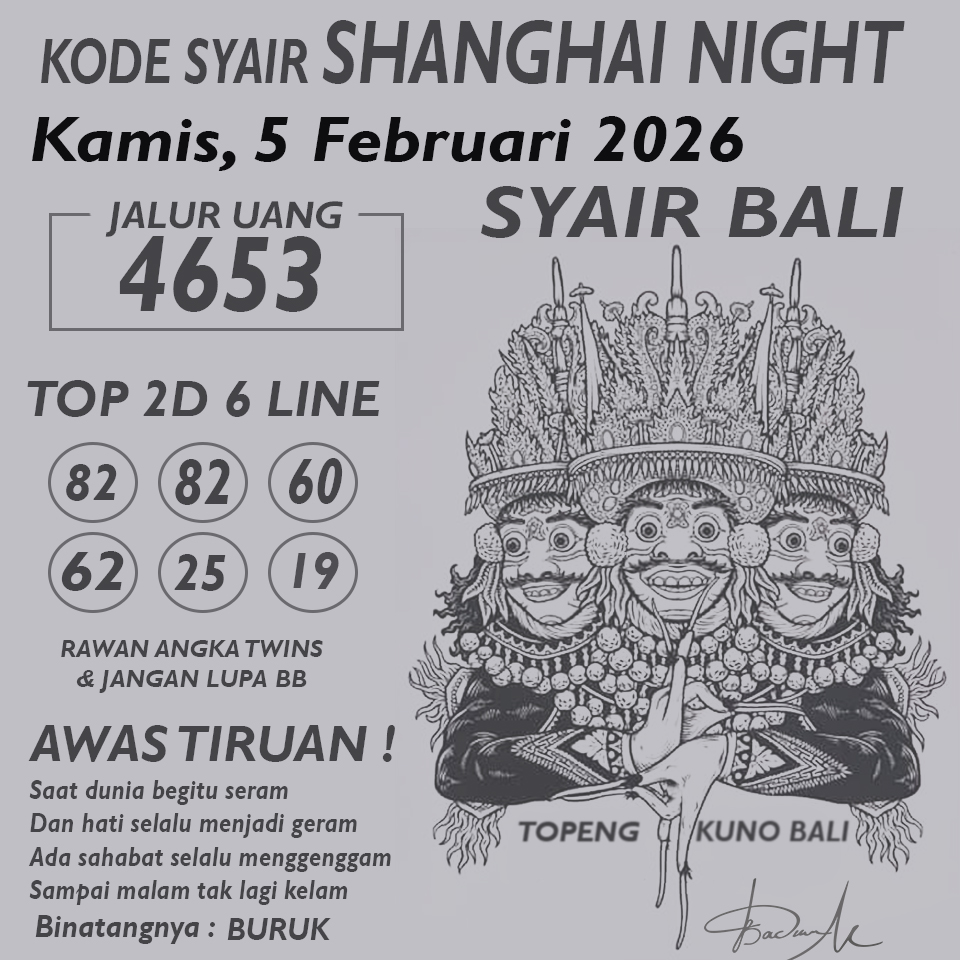 KODE SYAIR SHANGHAI NIGHT
Kamis, 5 Februari 2026
SYAIR BALI
JALUR UANG
4653
TOP 2D 6 LINE
82 82 60
62 25 19
RAWAN ANGKA TWINS
& JANGAN LUPA BB
AWAS TIRUAN !
Saat dunia begitu seram
Dan hati selalu menjadi geram
Ada sahabat selalu menggenggam
Sampai malam tak lagi kelam
Binatangnya : BURUK
TOPENG KUNO BALI